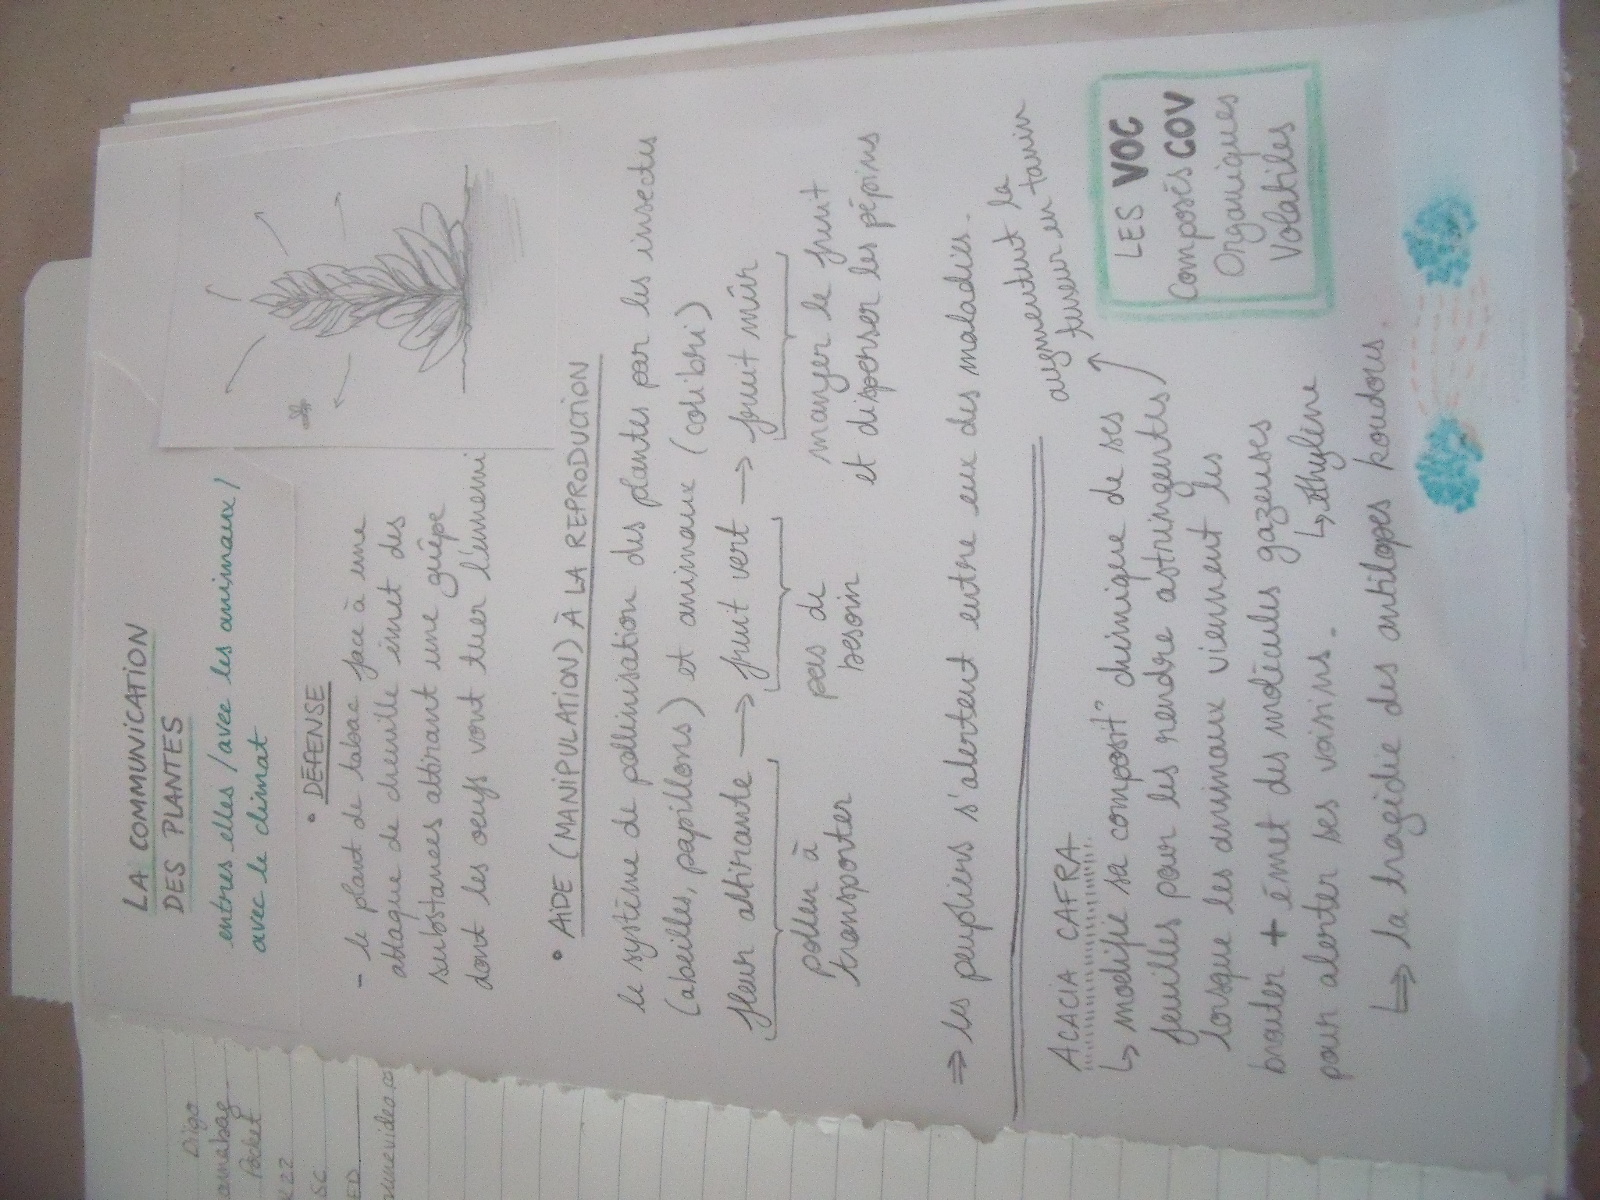 LA COMMUNICATION
DES PLANTES
entres elles / avec les animaux /
avec le climat
• DÉFENSE
- le plant de tabac face à une
attaque de chenille émet des
substances attirant une guêpe
dont les oeufs vont tuer l'ennemi
• AIDE (MANIPULATION) À LA REPRODUCTION
le système de pollinisation des plantes par les insectes
(abeilles, papillons) et animaux (colibri)
fleur attirante → fruit vert → fruit mûr
pollen à
transporter
pas de
besoin
manger le fruit
et disperser les pépins
⇒ les peupliers s'alertent entre eux des maladies.
ACACIA CAFRA
↳ modifie sa composit° chimique de ses
feuilles pour les rendre astringentes
lorsque les animaux viennent les
brouter + émet des molécules gazeuses
↳ éthylène
pour alerter ses voisins.
↳ la tragédie des antilopes koudous.
augmentent la
teneur en tanin
LES VOC
Composés COV
Organiques
Volatiles
Diigo
annabag
Pocket
22
SC
ED